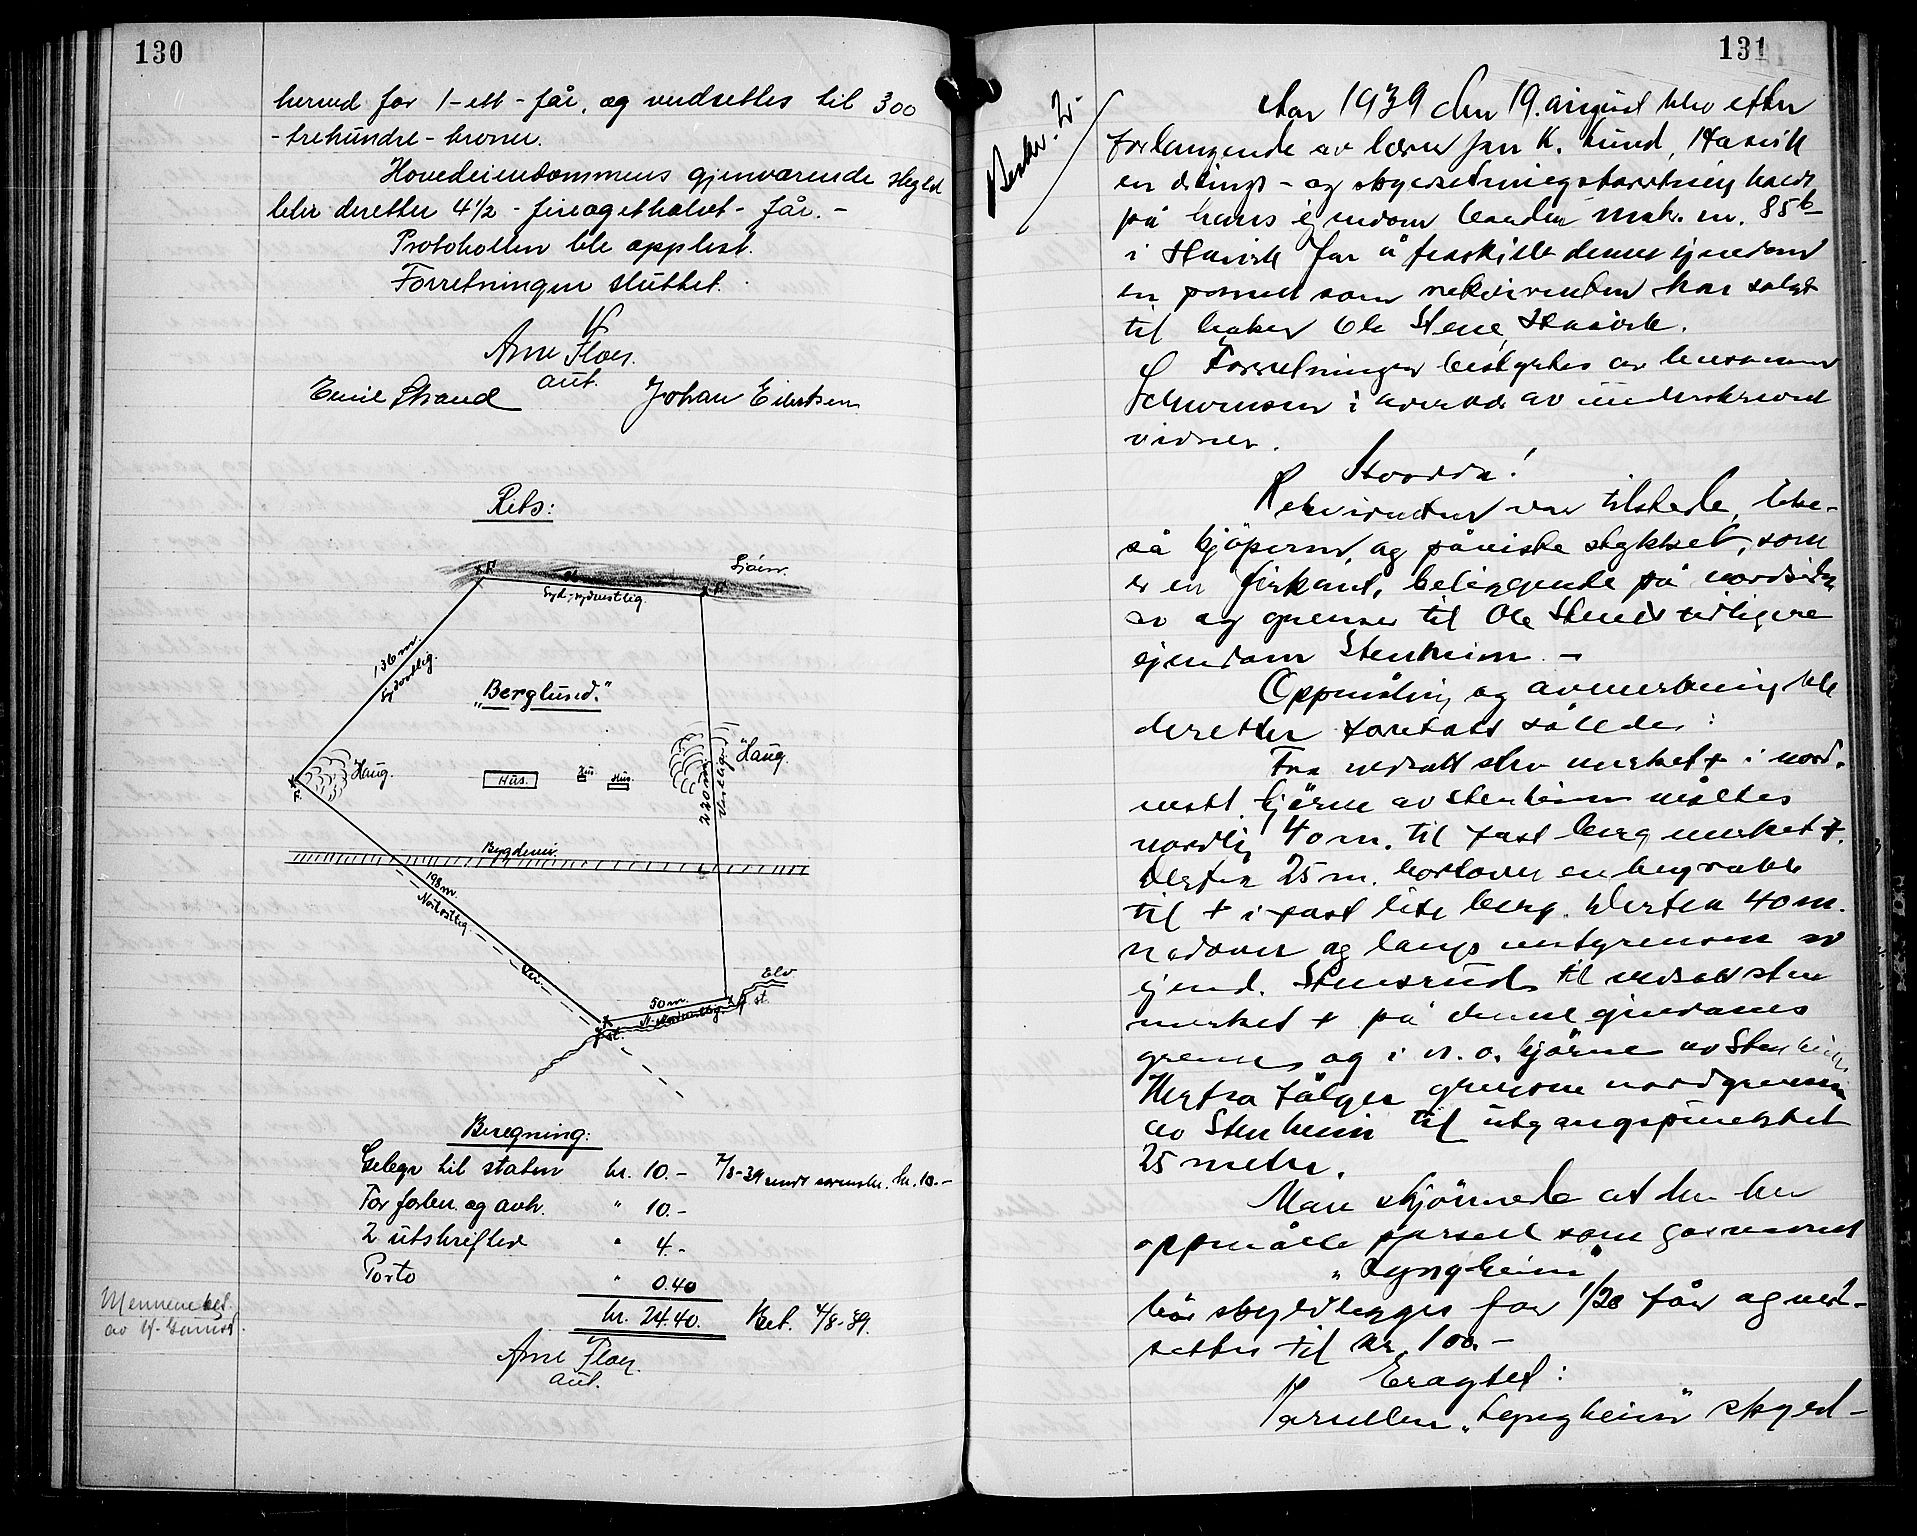 130
herved for 1-ett-får, og verdsettes til 300
-trehundre-kroner.
Hovedeiendommens gjenværende skyld
blir deretter 4½ - fireogethalvt - får. -
Protokollen ble opplest.
Forretningen sluttet.
Arne Floer.
aut.
Emil Strand Johan Eilertsen
Rits:
Sjöen.
Syd-sydvestlig.
136 m.
Sydostlig.
"Berglund."
Haug.
Hus.
Hus
Hus.
Haug.
220 m.
Vestlig
F.
Bygdevei.
198 m.
Nordostlig.
Vei.
Elv
50 m.
st.
st.
Beregning:
Gebyr til staten kr. 10.- 7/8-39 sendt sorenskr. kr. 10.-
For forber. og avh. " 10.-
2 utskrifter " 4.-
Porto " 0.40
kr. 24.40. Bet. 4/8-39.
Arne Floer.
aut.
Mennene bet.
av
131
Beskr. 2.-
Aar 1939 den 19. august blev efter
forlangende av lærer Jan K. Lund, Hasvik
en delings- og skyldsetningsforretning holdt
på hans ejendom matr. nr. 85
i Hasvik for å fraskille denne ejendom
en parsel som rekvirenten har solgt
til baker Ole Stene, Hasvik.
Forretningen bestyrtes av lensmann
i overvær av underskrevne
vidner.
Rekvirenten var tilstede, like-
så kjöperen og påviste stykket, som
er en firkant, beliggende på nordsiden
av og grenser til Ole Stenes tidligere
ejendom Stenheim. -
Oppmåling og avmerkning ble
deretter foretatt således:
Fra nedsatt sten merket + i nord-
vestl. hjörne av Stenheim måltes
nordlig 40 m. til fast berg merket +.
Derfra 25 m. bortover en bergrabb
til + i fast lite berg. Derfra 40 m.
nedover og langs vestgrensen av
ejend. Stensrud til nedsatt sten
merket + på denne ejendoms
grense og i n. o. hjörne av Stenheim.
Herfra fölger grensene nordgrensen
av Stenheim til utgangspunktet
25 meter.
Man skjönnede at den her
oppmålte parsell som gav navnet
"Lyngheim"
bör skyldlegges for 1/20 får og verd-
settes til kr. 100.-
Eragtet:
Parsellen "Lyngheim" skyld-